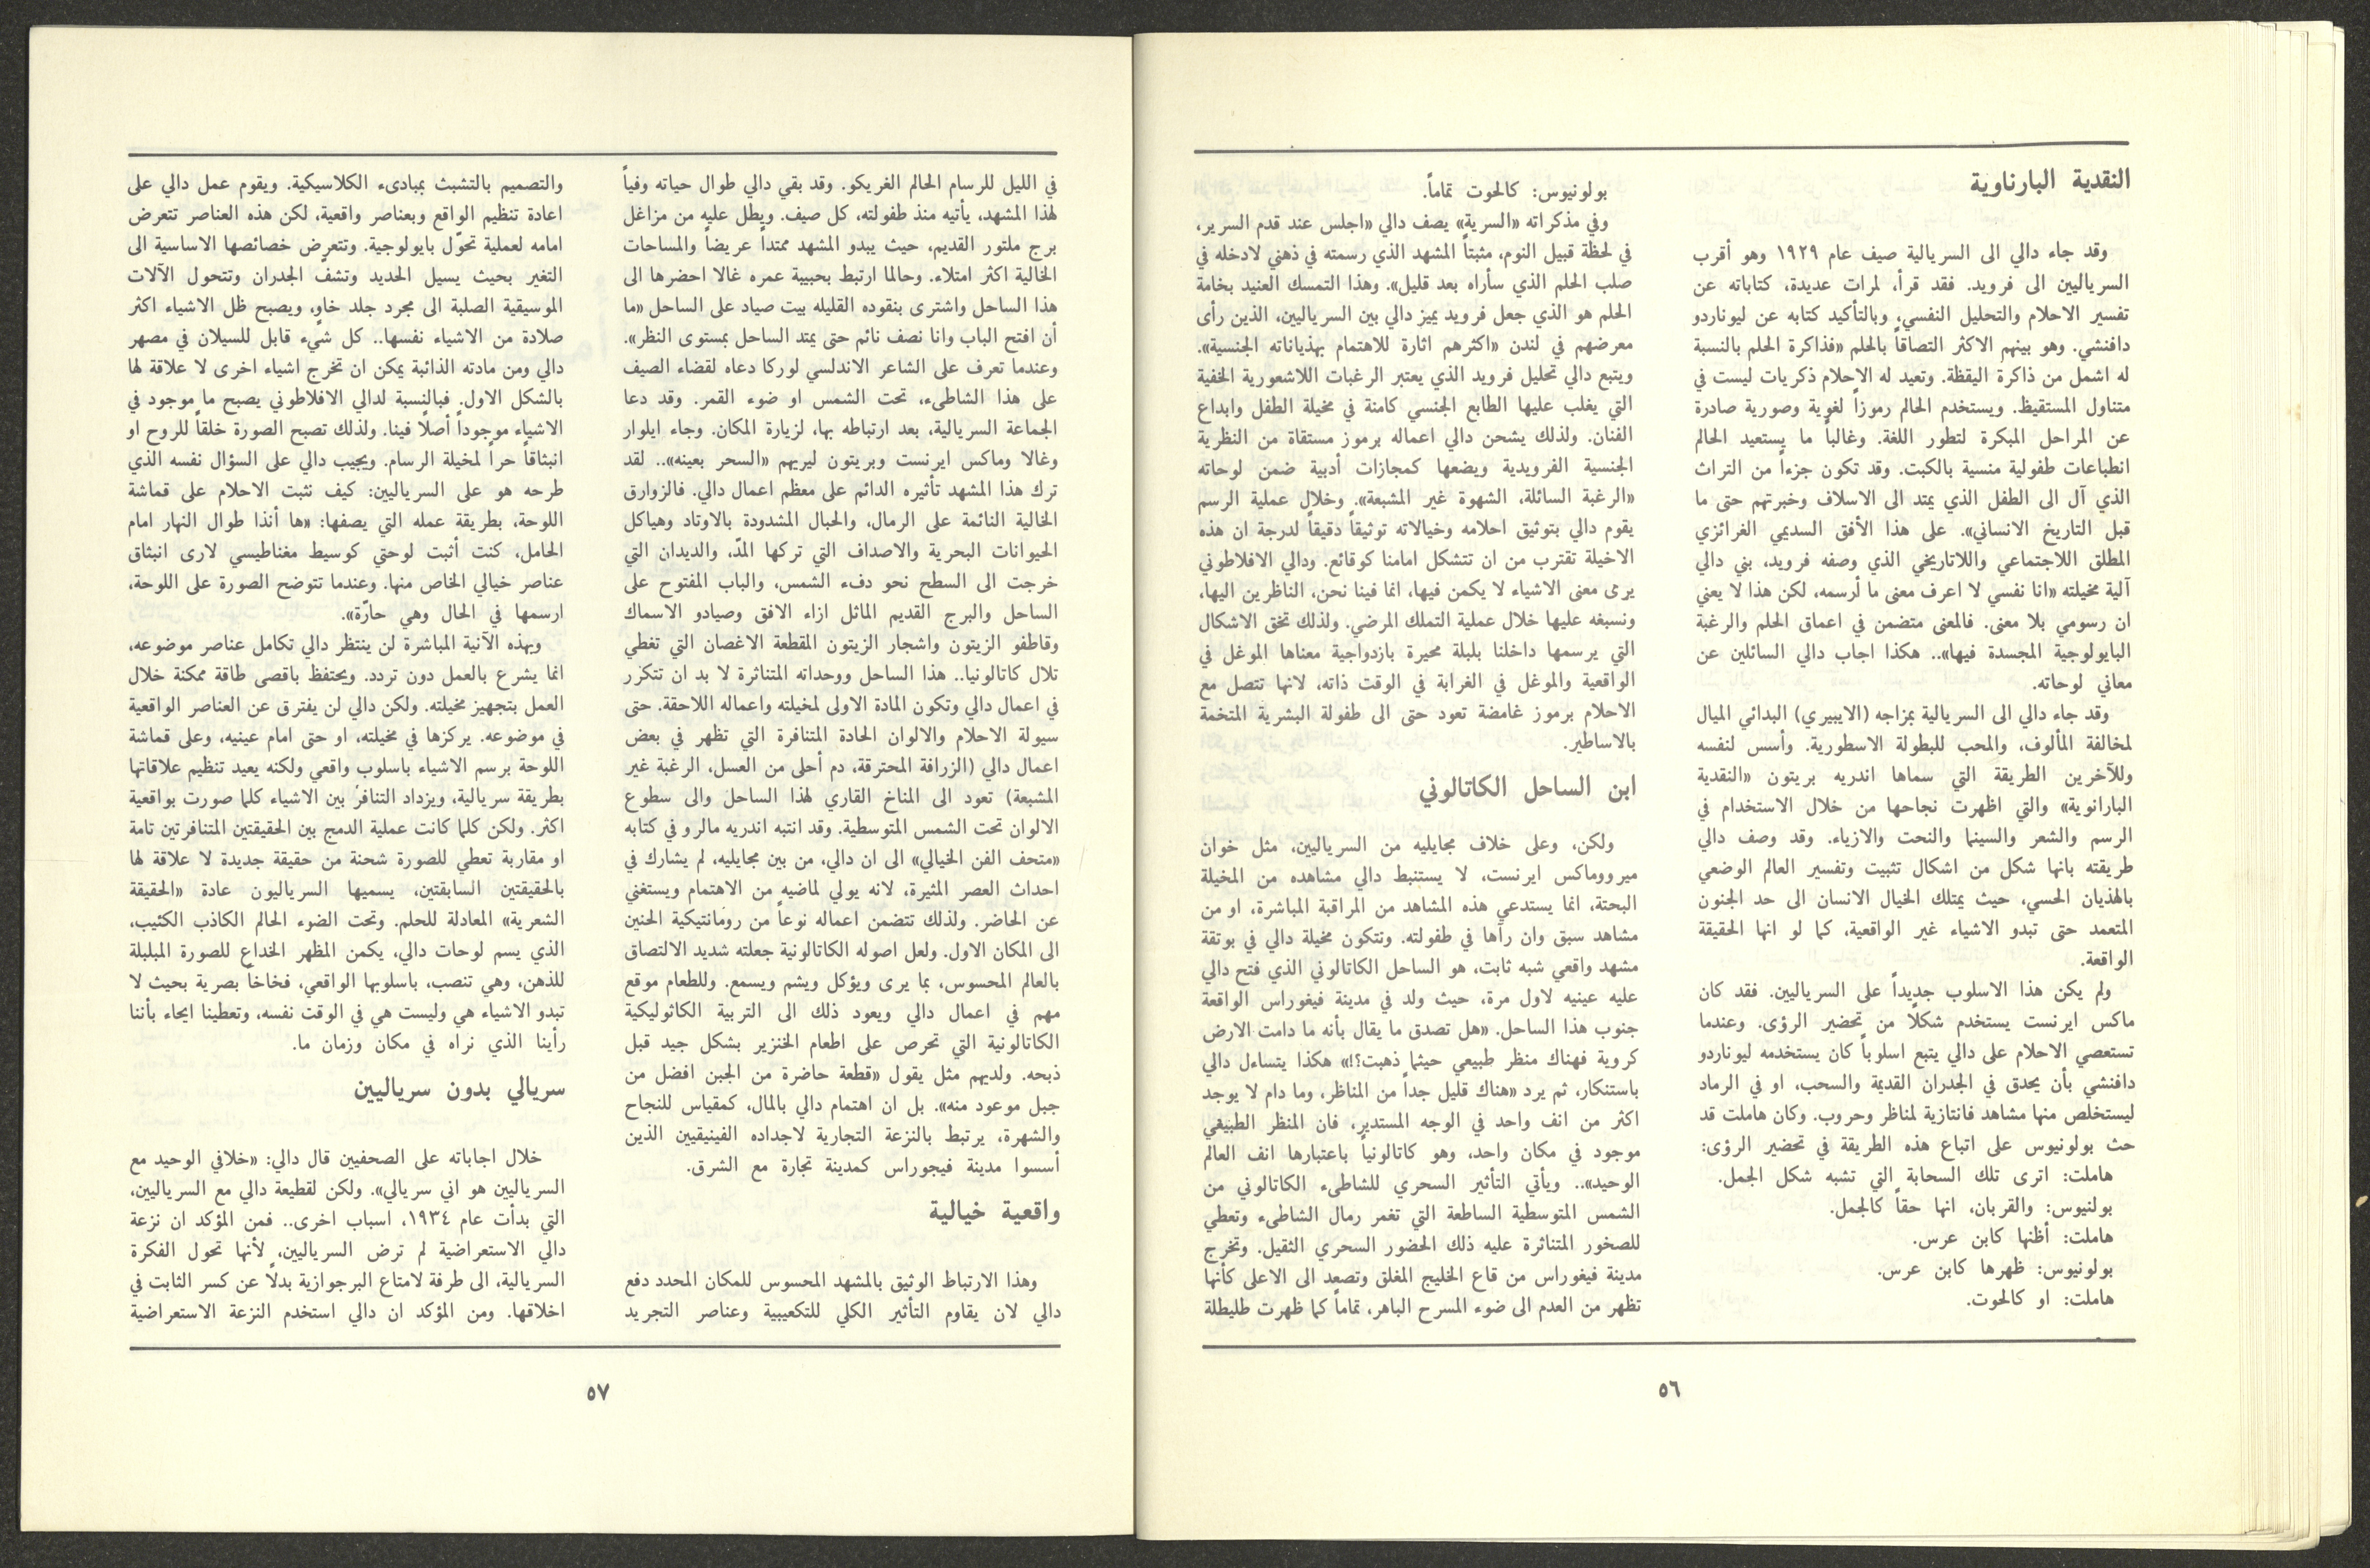 النقدية البارناوية
وقد جاء دالي الى السريالية صيف عام ١٩٢٩ وهو أقرب
السرياليين الى فرويد. فقد قرأ، لمرات عديدة، كتاباته عن
تفسير الاحلام والتحليل النفسي، وبالتأكيد كتابه عن ليوناردو
دافنشي. وهو بينهم الاكثر التصاقاً بالحلم «فذاكرة الحلم بالنسبة
له اشمل من ذاكرة اليقظة. وتعيد له الاحلام ذكريات ليست في
متناول المستقيظ. ويستخدم الحالم رموزاً لغوية وصورية صادرة
عن المراحل المبكرة لتطور اللغة. وغالباً ما يستعيد الحالم
انطباعات طفولية منسية بالكبت. وقد تكون جزءاً من التراث
الذي آل الى الطفل الذي يمتد الى الاسلاف وخبرتهم حتى ما
قبل التاريخ الانساني». على هذا الأفق السديمي الغرائزي
المطلق اللاجتماعي واللاتاريخي الذي وصفه فرويد، بني دالي
آلية مخيلته «انا نفسي لا اعرف معنى ما أرسمه، لكن هذا لا يعني
ان رسومي بلا معنى. فالمعنى متضمن في اعماق الحلم والرغبة
البايولوجية المجسدة فيها».. هكذا اجاب دالي السائلين عن
معاني لوحاته.
وقد جاء دالي الى السريالية بمزاجه (الايبيري) البدائي الميال
لمخالفة المألوف، والمحب للبطولة الاسطورية. وأسس لنفسه
وللآخرين الطريقة التي سماها اندريه بريتون «النقدية
البارانوية» والتي اظهرت نجاحها من خلال الاستخدام في
الرسم والشعر والسينما والنحت والازياء. وقد وصف دالي
طريقته بانها شكل من اشكال تثبيت وتفسير العالم الوضعي
بالهذيان الحسي، حيث يمتلك الخيال الانسان الى حد الجنون
المتعمد حتى تبدو الاشياء غير الواقعية، كما لو انها الحقيقة
الواقعة.
ولم يكن هذا الاسلوب جديداً على السرياليين. فقد كان
ماكس ايرنست يستخدم شكلًا من تحضير الرؤى. وعندما
تستعصي الاحلام على دالي يتبع اسلوباً كان يستخدمه ليوناردو
دافنشي بأن يحدق في الجدران القديمة والسحب، او في الرماد
ليستخلص منها مشاهد فانتازية لمناظر وحروب. وكان هاملت قد
حث بولونيوس على اتباع هذه الطريقة في تحضير الرؤى:
هاملت: اترى تلك السحابة التي تشبه شكل الجمل.
بولنيوس: والقربان، انها حقاً كالجمل.
هاملت: أظنها كابن عرس.
بولونيوس: ظهرها كابن عرس.
هاملت: او كالحوت.
بولونيوس: كالحوت تماماً.
وفي مذكراته «السرية» يصف دالي «اجلس عند قدم السرير،
في لحظة قبيل النوم، مثبتاً المشهد الذي رسمته في ذهني لادخله في
صلب الحلم الذي سأراه بعد قليل». وهذا التمسك العنيد بخامة
الحلم هو الذي جعل فرويد يميز دالي بين السرياليين، الذين رأى
معرضهم في لندن «اكثرهم اثارة للاهتمام بهذياناته الجنسية».
ويتبع دالي تحليل فرويد الذي يعتبر الرغبات اللاشعورية الخفية
التي يغلب عليها الطابع الجنسي كامنة في مخيلة الطفل وابداع
الفنان. ولذلك يشحن دالي اعماله برموز مستقاة من النظرية
الجنسية الفرويدية ويضعها كمجازات أدبية ضمن لوحاته
«الرغبة السائلة، الشهوة غير المشبعة». وخلال عملية الرسم
يقوم دالي بتوثيق احلامه وخيالاته توثيقاً دقيقاً لدرجة ان هذه
الاخيلة تقترب من ان تتشكل امامنا كوقائع. ودالي الافلاطوني
يرى معنى الاشياء لا يكمن فيها، انما فينا نحن، الناظرين اليها،
ونسبغه عليها خلال عملية التملك المرضي. ولذلك تخق الاشكال
التي يرسمها داخلنا بلبلة محيرة بازدواجية معناها الموغل في
الواقعية والموغل في الغرابة في الوقت ذاته، لانها تتصل مع
الاحلام برموز غامضة تعود حتى الى طفولة البشرية المتخمة
بالاساطير.
ابن الساحل الكاتالوني
ولكن، وعلى خلاف مجايليه من السرياليين، مثل خوان
ميرووماكس ايرنست، لا يستنبط دالي مشاهده من المخيلة
البحتة، انما يستدعي هذه المشاهد من المراقبة المباشرة، او من
مشاهد سبق وان رآها في طفولته. وتتكون مخيلة دالي في بوتقة
مشهد واقعي شبه ثابت، هو الساحل الكاتالوني الذي فتح دالي
عليه عينيه لاول مرة، حيث ولد في مدينة فيغوراس الواقعة
جنوب هذا الساحل. «هل تصدق ما يقال بأنه ما دامت الارض
كروية فهناك منظر طبيعي حيثما ذهبت؟!» هكذا يتساءل دالي
باستنكار، ثم يرد «هناك قليل جداً من المناظر، وما دام لا يوجد
اكثر من انف واحد في الوجه المستدير، فان المنظر الطبيعي
موجود في مكان واحد، وهو كاتالونياً باعتبارها انف العالم
الوحيد».. ويأتي التأثير السحري للشاطىء الكاتالوني من
الشمس المتوسطية الساطعة التي تغمر رمال الشاطىء وتعطي
للصخور المتناثرة عليه ذلك الحضور السحري الثقيل. وتخرج
مدينة فيغوراس من قاع الخليج المغلق وتصعد الى الاعلى كأنها
تظهر من العدم الى ضوء المسرح الباهر، تماماً كما ظهرت طليطلة
٥٦
في الليل للرسام الحالم الغريكو. وقد بقي دالي طوال حياته وفياً
لهذا المشهد، يأتيه منذ طفولته، كل صيف. ويطل عليه من مزاغل
برج ملتور القديم، حيث يبدو المشهد ممتداً عريضاً والمساحات
الخالية اكثر امتلاء. وحالما ارتبط بحبيبة عمره غالا احضرها الى
هذا الساحل واشترى بنقوده القليله بيت صياد على الساحل «ما
أن افتح الباب وانا نصف نائم حتى يمتد الساحل بمستوى النظر».
وعندما تعرف على الشاعر الاندلسي لوركا دعاه لقضاء الصيف
على هذا الشاطىء، تحت الشمس او ضوء القمر. وقد دعا
الجماعة السريالية، بعد ارتباطه بها، لزيارة المكان. وجاء ايلوار
وغالا وماكس ايرنست وبريتون ليريهم «السحر بعينه».. لقد
ترك هذا المشهد تأثيره الدائم على معظم اعمال دالي. فالزوارق
الخالية النائمة على الرمال، والحبال المشدودة بالاوتاد وهياكل
الحيوانات البحرية والاصداف التي تركها المدّ، والديدان التي
خرجت الى السطح نحو دفء الشمس، والباب المفتوح على
الساحل والبرج القديم الماثل ازاء الافق وصيادو الاسماك
وقاطفو الزيتون واشجار الزيتون المقطعة الاغصان التي تغطي
تلال كاتالونيا.. هذا الساحل ووحداته المتناثرة لا بد ان تتكرر
في اعمال دالي وتكون المادة الاولى لمخيلته واعماله اللاحقة. حتى
سيولة الاحلام والالوان الحادة المتنافرة التي تظهر في بعض
اعمال دالي (الزرافة المحترقة، دم أحلى من العسل، الرغبة غير
المشبعة) تعود الى المناخ القاري لهذا الساحل والى سطوع
الالوان تحت الشمس المتوسطية. وقد انتبه اندريه مالرو في كتابه
«متحف الفن الخيالي» الى ان دالي، من بين مجايليه، لم يشارك في
احداث العصر المثيرة، لانه يولي لماضيه من الاهتمام ويستغني
عن الحاضر. ولذلك تتضمن اعماله نوعاً من رومانتيكية الحنين
الى المكان الاول. ولعل اصوله الكاتالونية جعلته شديد الالتصاق
بالعالم المحسوس، بما يرى ويؤكل ويشم ويسمع. وللطعام موقع
مهم في اعمال دالي ويعود ذلك الى التربية الكاثوليكية
الكاتالونية التي تحرص على اطعام الخنزير بشكل جيد قبل
ذبحه. ولديهم مثل يقول «قطعة حاضرة من الجبن افضل من
جبل موعود منه». بل ان اهتمام دالي بالمال، كمقياس للنجاح
والشهرة، يرتبط بالنزعة التجارية لاجداده الفينيقيين الذين
أسسوا مدينة فيجوراس كمدينة تجارة مع الشرق.
واقعية خيالية
وهذا الارتباط الوثيق بالمشهد المحسوس للمكان المحدد دفع
دالي لان يقاوم التأثير الكلي للتكعيبية وعناصر التجريد
والتصميم بالتشبث بمبادىء الكلاسيكية. ويقوم عمل دالي على
اعادة تنظيم الواقع وبعناصر واقعية، لكن هذه العناصر تتعرض
امامه لعملية تحوّل بايولوجية. وتتعرض خصائصها الاساسية الى
التغير بحيث يسيل الحديد وتشفّ الجدران وتتحول الآلات
الموسيقية الصلبة الى مجرد جلد خاوٍ، ويصبح ظل الاشياء اكثر
صلادة من الاشياء نفسها.. كل شيء قابل للسيلان في مصهر
دالي ومن مادته الذائبة يمكن ان تخرج اشياء اخرى لا علاقة لها
بالشكل الاول. فبالنسبة لدالي الافلاطوني يصبح ما موجود في
الاشياء موجوداً أصلًا فينا. ولذلك تصبح الصورة خلقاً للروح او
انبثاقاً حراً لمخيلة الرسام. ويجيب دالي على السؤال نفسه الذي
طرحه هو على السرياليين: كيف نثبت الاحلام على قماشة
اللوحة، بطريقة عمله التي يصفها: «ها أنذا طوال النهار امام
الحامل، كنت أثبت لوحتي كوسيط مغناطيسي لارى انبثاق
عناصر خيالي الخاص منها. وعندما تتوضح الصورة على اللوحة،
ارسمها في الحال وهي حارّة».
وبهذه الآنية المباشرة لن ينتظر دالي تكامل عناصر موضوعه،
انما يشرع بالعمل دون تردد. ويحتفظ باقصى طاقة ممكنة خلال
العمل بتجهيز مخيلته. ولكن دالي لن يفترق عن العناصر الواقعية
في موضوعه. يركزها في مخيلته، او حتى امام عينيه، وعلى قماشة
اللوحة برسم الاشياء باسلوب واقعي ولكنه يعيد تنظيم علاقاتها
بطريقة سريالية، ويزداد التنافر بين الاشياء كلما صورت بواقعية
اكثر. ولكن كلما كانت عملية الدمج بين الحقيقتين المتنافرتين تامة
او مقاربة تعطي للصورة شحنة من حقيقة جديدة لا علاقة لها
بالحقيقتين السابقتين، يسميها السرياليون عادة «الحقيقة
الشعرية» المعادلة للحلم. وتحت الضوء الحالم الكاذب الكئيب،
الذي يسم لوحات دالي، يكمن المظهر الخداع للصورة المبلبلة
للذهن، وهي تنصب، باسلوبها الواقعي، فخاخاً بصرية بحيث لا
تبدو الاشياء هي وليست هي في الوقت نفسه، وتعطينا ايحاء بأننا
رأينا الذي نراه في مكان وزمان ما.
سريالي بدون سرياليين
خلال اجاباته على الصحفيين قال دالي: «خلافي الوحيد مع
السرياليين هو اني سريالي». ولكن لقطيعة دالي مع السرياليين،
التي بدأت عام ١٩٣٤، اسباب اخرى.. فمن المؤكد ان نزعة
دالي الاستعراضية لم ترض السرياليين، لأنها تحول الفكرة
السريالية، الى طرفة لامتاع البرجوازية بدلًا عن كسر الثابت في
اخلاقها. ومن المؤكد ان دالي استخدم النزعة الاستعراضية
٥٧